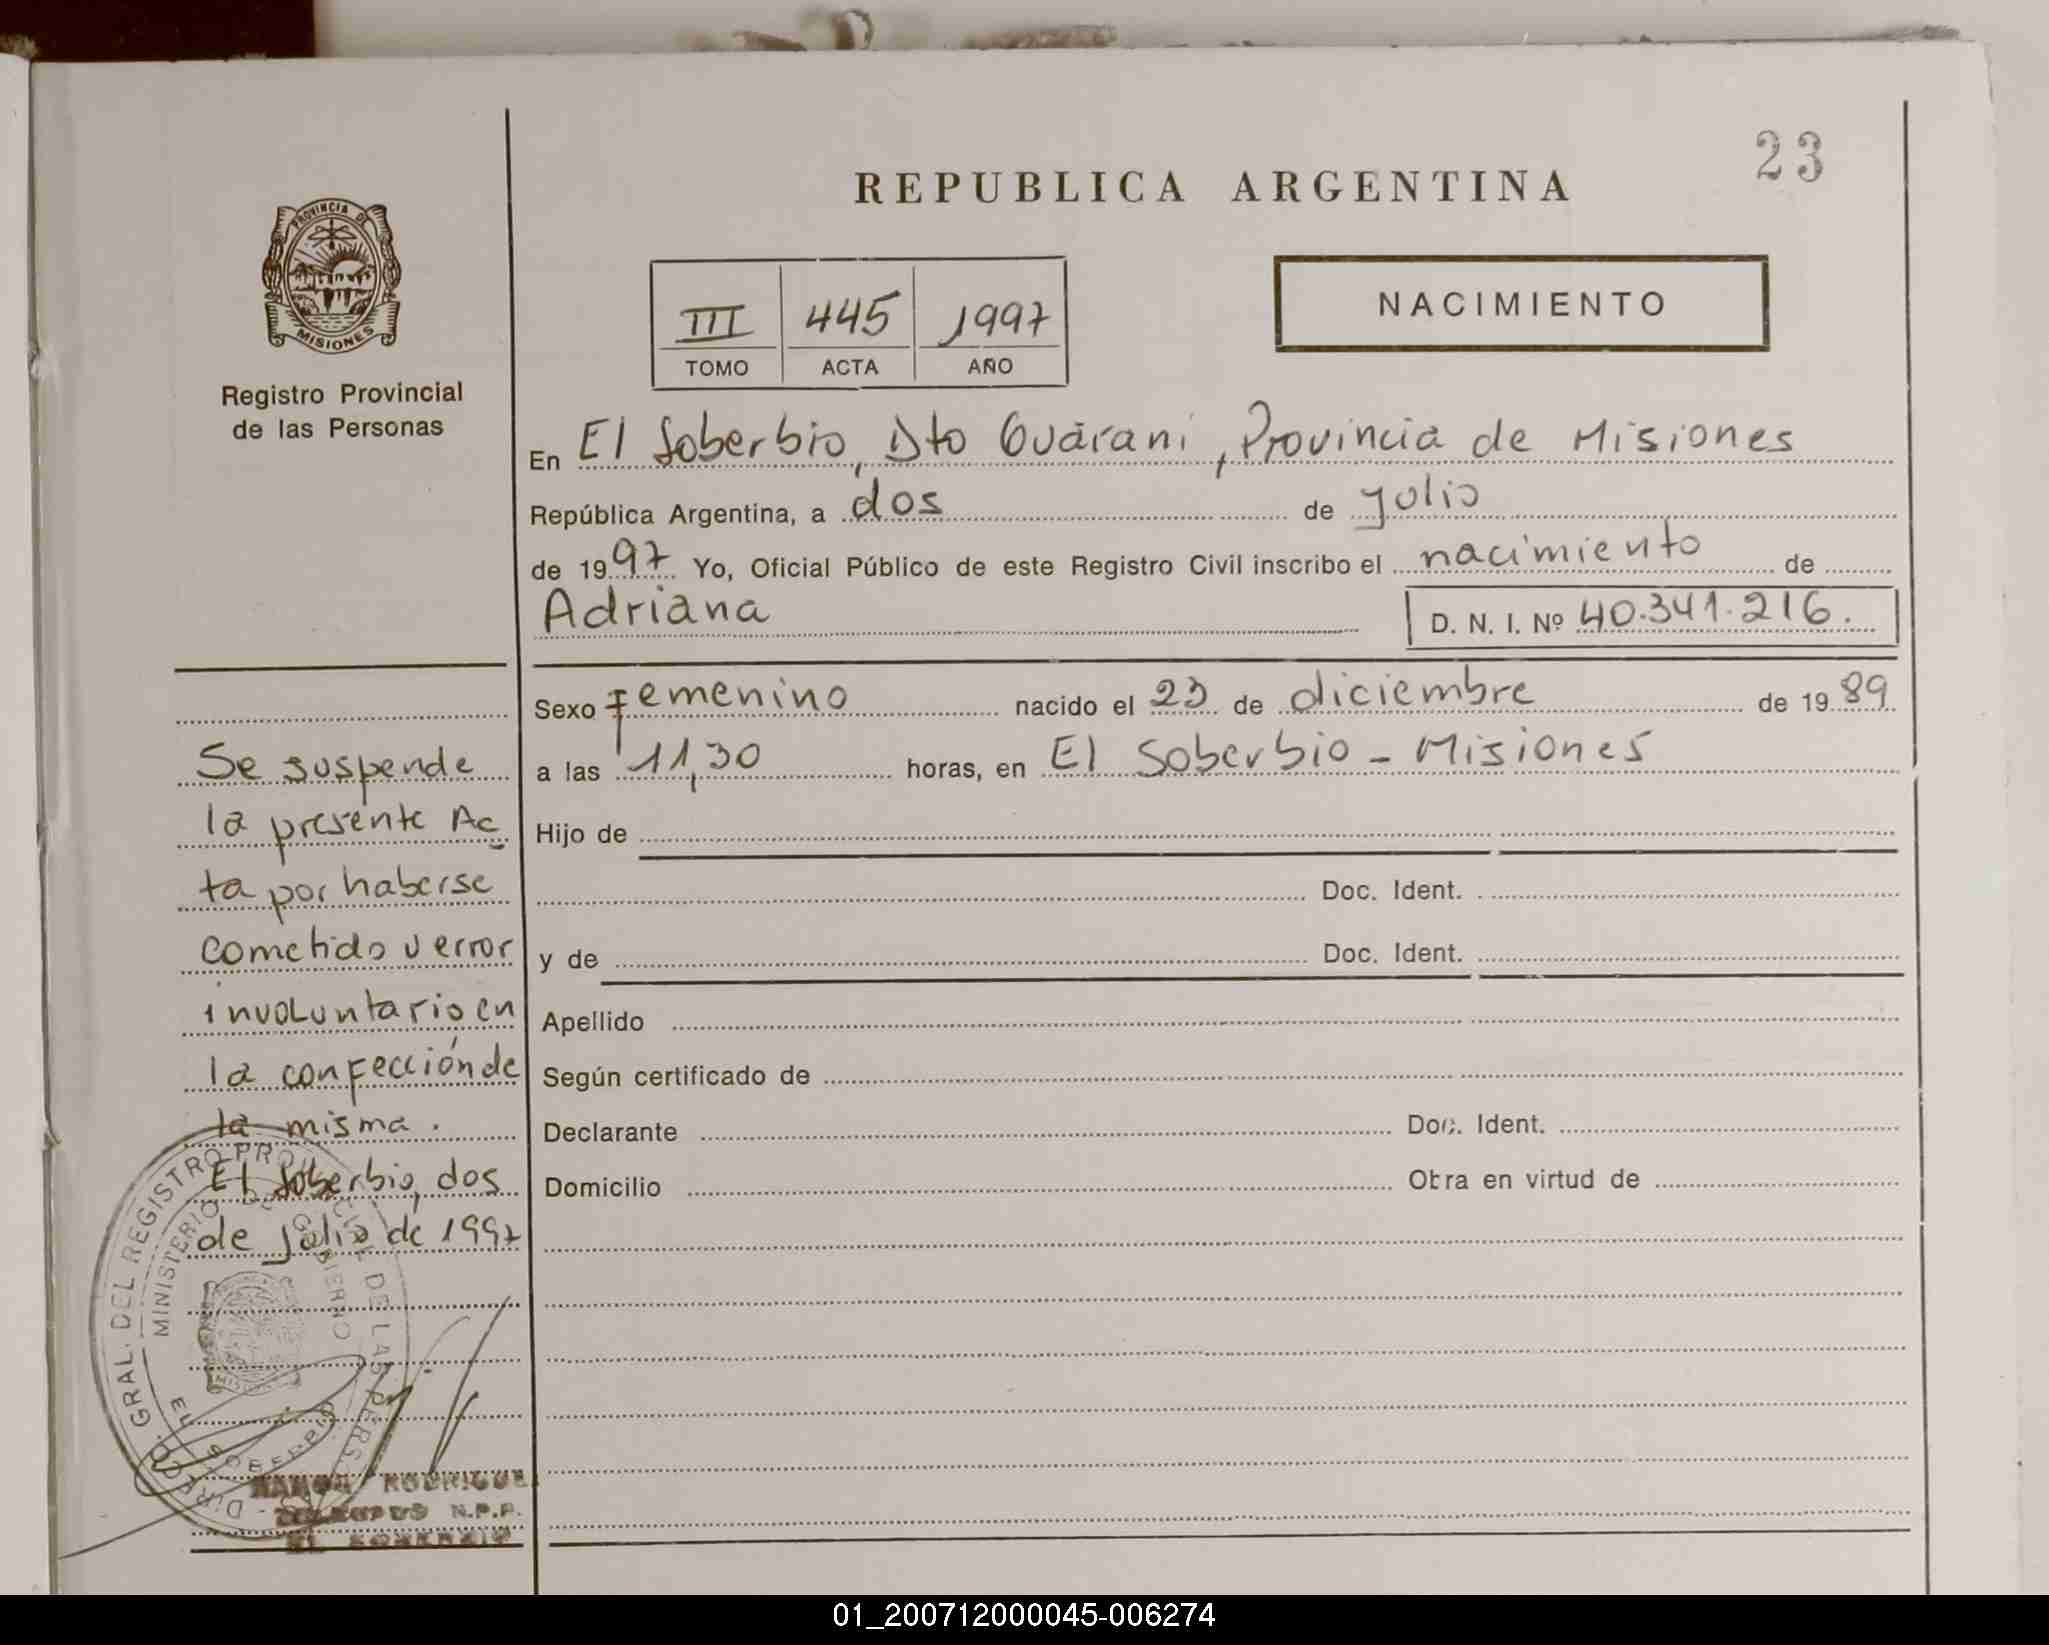 23
REPUBLICA ARGENTINA
PROVINCIA DE
MISIONES
Registro Provincial
de las Personas
III 445 1997
TOMO ACTA AÑO
NACIMIENTO
En El Soberbio, Dto Guaraní, Provincia de Misiones
República Argentina, a dos de Julio
de 1997 Yo, Oficial Público de este Registro Civil inscribo el nacimiento de
Adriana D. N. I. Nº 40.341.216.
Sexo Femenino nacido el 23 de diciembre de 1989
a las 11,30 horas, en El Soberbio - Misiones
Hijo de
Doc. Ident.
y de Doc. Ident.
Apellido
Según certificado de
Declarante Doc. Ident.
Domicilio Otra en virtud de
Se suspende
la presente Ac
ta por haberse
cometido u error
involuntario en
la confección de
la misma.
El Soberbio, dos
de Julio de 1997
DIRECC. GRAL. DEL REGISTRO PROVINCIAL DE LAS PERS
MINISTERIO DE GOBIERNO
MISIONES
EL SOBERBIO
RAMON RODRIGUE
R.P.P.
EL SOBERBIO
01_200712000045-006274